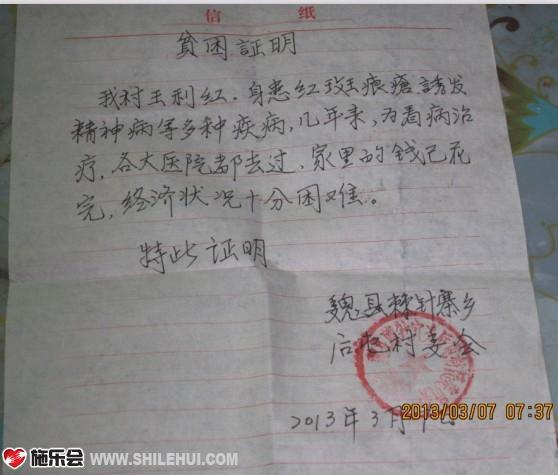 信 纸
贫困証明
我村王利红.身患红斑狼疮.誘发
精神病等多种疾病,几年来,为看病治
疗,各大医院都去过、家里的钱已花
完,经济状况十分困难。
特此证明
魏县棘针寨乡
后屯村委会
2013年3月
2013/03/07 07:37
施乐会 WWW.SHILEHUI.COM